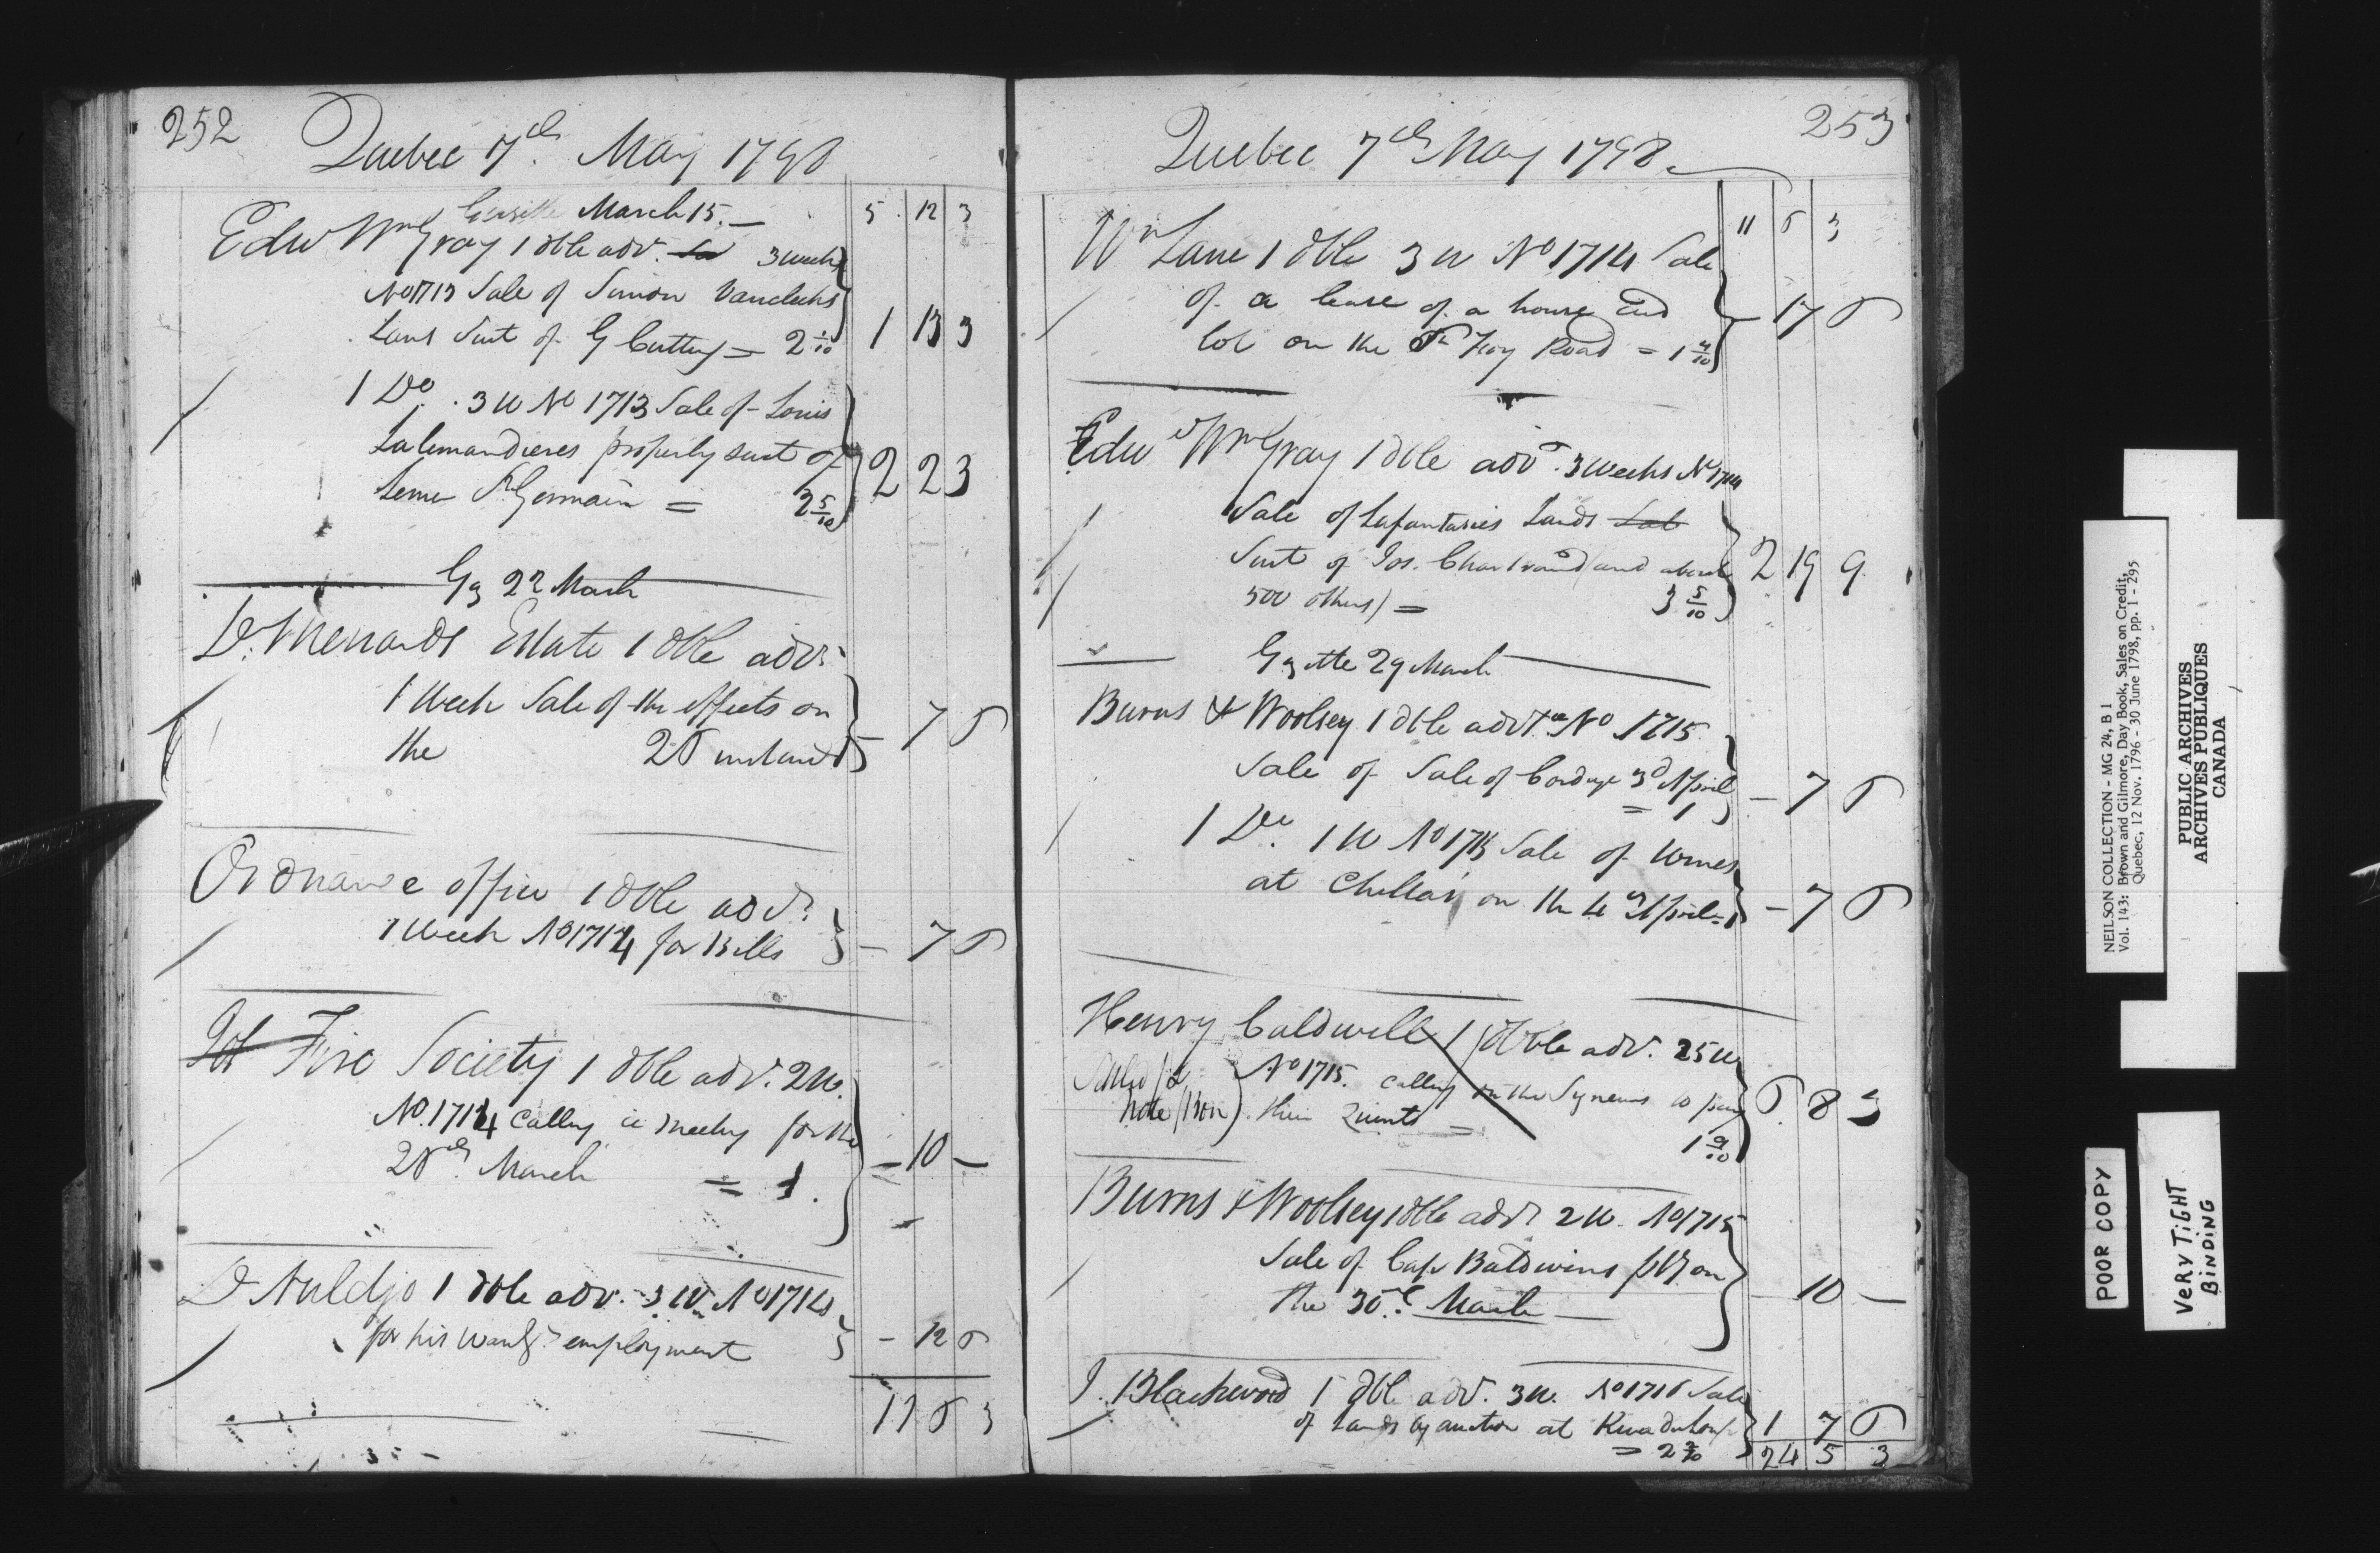 252
Quebec 7th May 1798
Gazette March 15. — 5 12 3
Edw Wm Gray 1 dble adv. 3 weeks
No 1713 Sale of Simon
Lans Suit of G Cutting = 2 1/10 1 13 3
1 Do. 3 W No 1713 Sale of Louis
Lalemandieres property suit of
St Germain = 2 5/10 2 2 3
Gz 22 March
D. Menards Estate 1 dble adv.
1 Week Sale of the effects on
the 26 instant — 7 6
Ordnance office 1 dble adv.
1 Week No 1714 for Bills — 7 6
Fire Society 1 dble adv. 2 W.
No. 1714 Calling a meeting for the
26th March = 1. — 10 —
D Auldjo 1 dble adv. 3 W. No 1714
for his wantg employment — 12 6
11 6 3
253
Quebec 7th May 1798
11 6 3
Wm Lane 1 dble 3 W No 1714 Sale
of a lease of a house and
lot on the St Foy Road = 1 4/10 — 17 6
Edwd Wm Gray 1 dble advt. 3 weeks No 1714
Sale of Lafantasies Lands
Suit of Jos. Chartrand (and about
500 others) = 3 5/10 2 19 9
Gzette 29 March
Burns & Woolsey 1 dble advt. No 1715
Sale of Sale of Cordage 3d April
= 1 — 7 6
1 Do. 1 W No 1715 Sale of Wines
at on the 4th April = 1 — 7 6
Henry Caldwell 1 dble adv. 25 W
No 1715. calling on the to pay
note their = 6 8 3
1 9/10
Burns & Woolsey 1 dble advt 2 W. No 1715
Sale of Capt Baldwins on
the 30th March — 10 —
J. Blackwood 1 dble adv. 3 W. No 1716 Sale
of Lands by auction at 1 7 6
= 2 2/10 24 5 3
NEILSON COLLECTION - MG 24, B 1
Vol. 143: Brown and Gilmore, Day Book, Sales on Credit,
Quebec, 12 Nov. 1796 - 30 June 1798, pp. 1 - 295
PUBLIC ARCHIVES
ARCHIVES PUBLIQUES
CANADA
POOR COPY
VERY TIGHT
BINDING